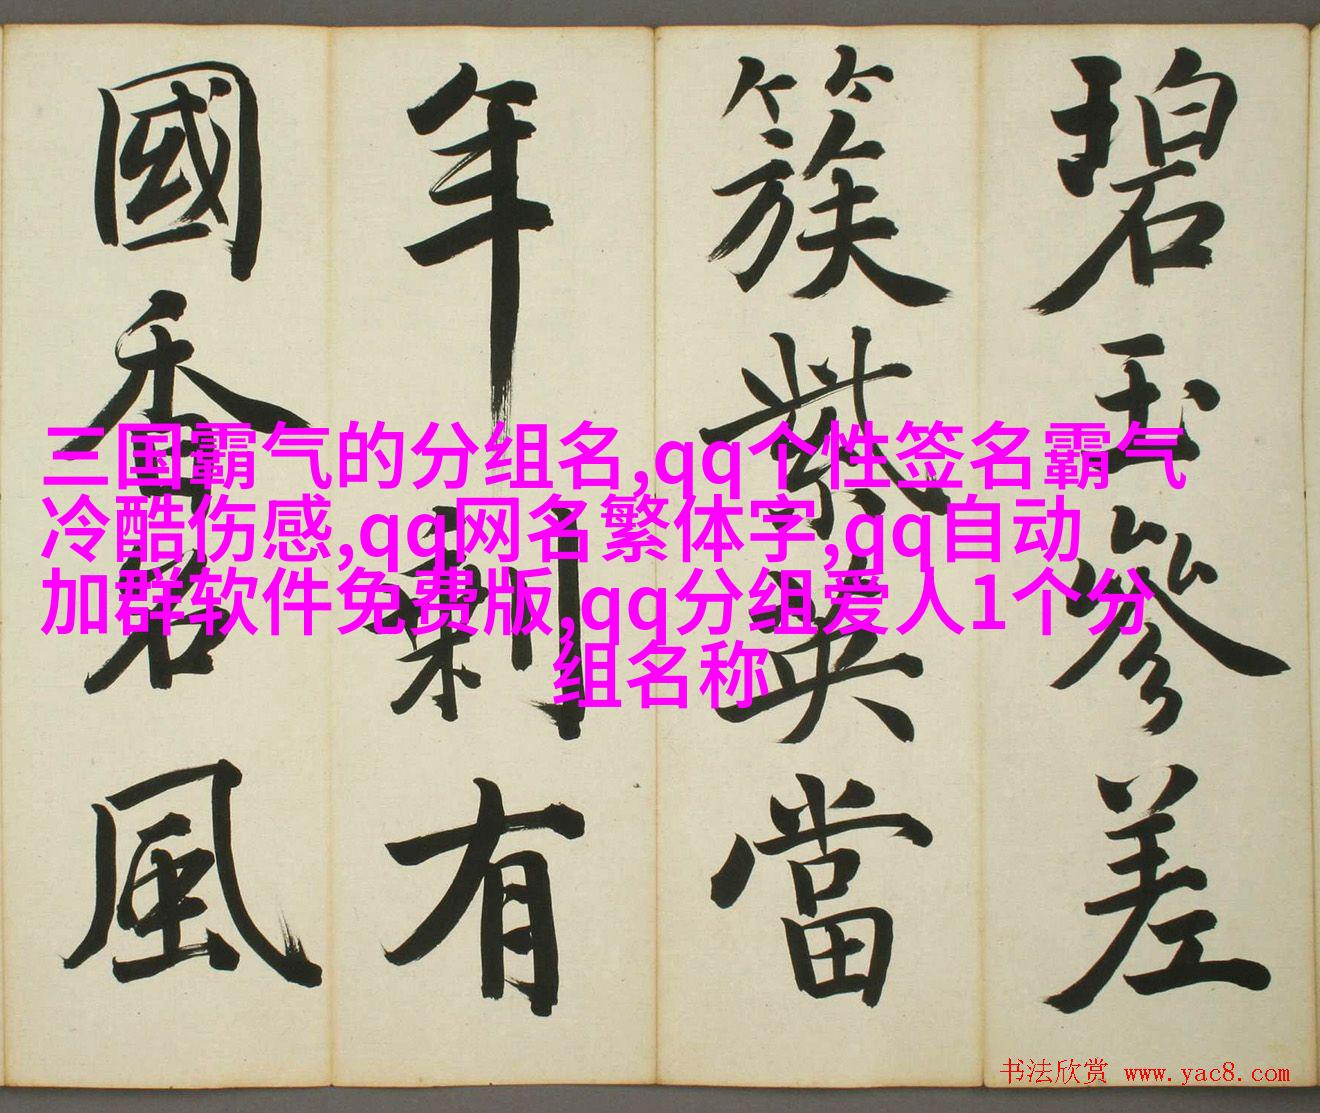 碧玉參差
簇紫英當
年剩有
國香名風
三国霸气的分组名,qq个性签名霸气
冷酷伤感,qq网名繁体字,qq自动
加群软件免费版,qq分组爱人1个分
组名称
书法欣赏 www.yac8.com